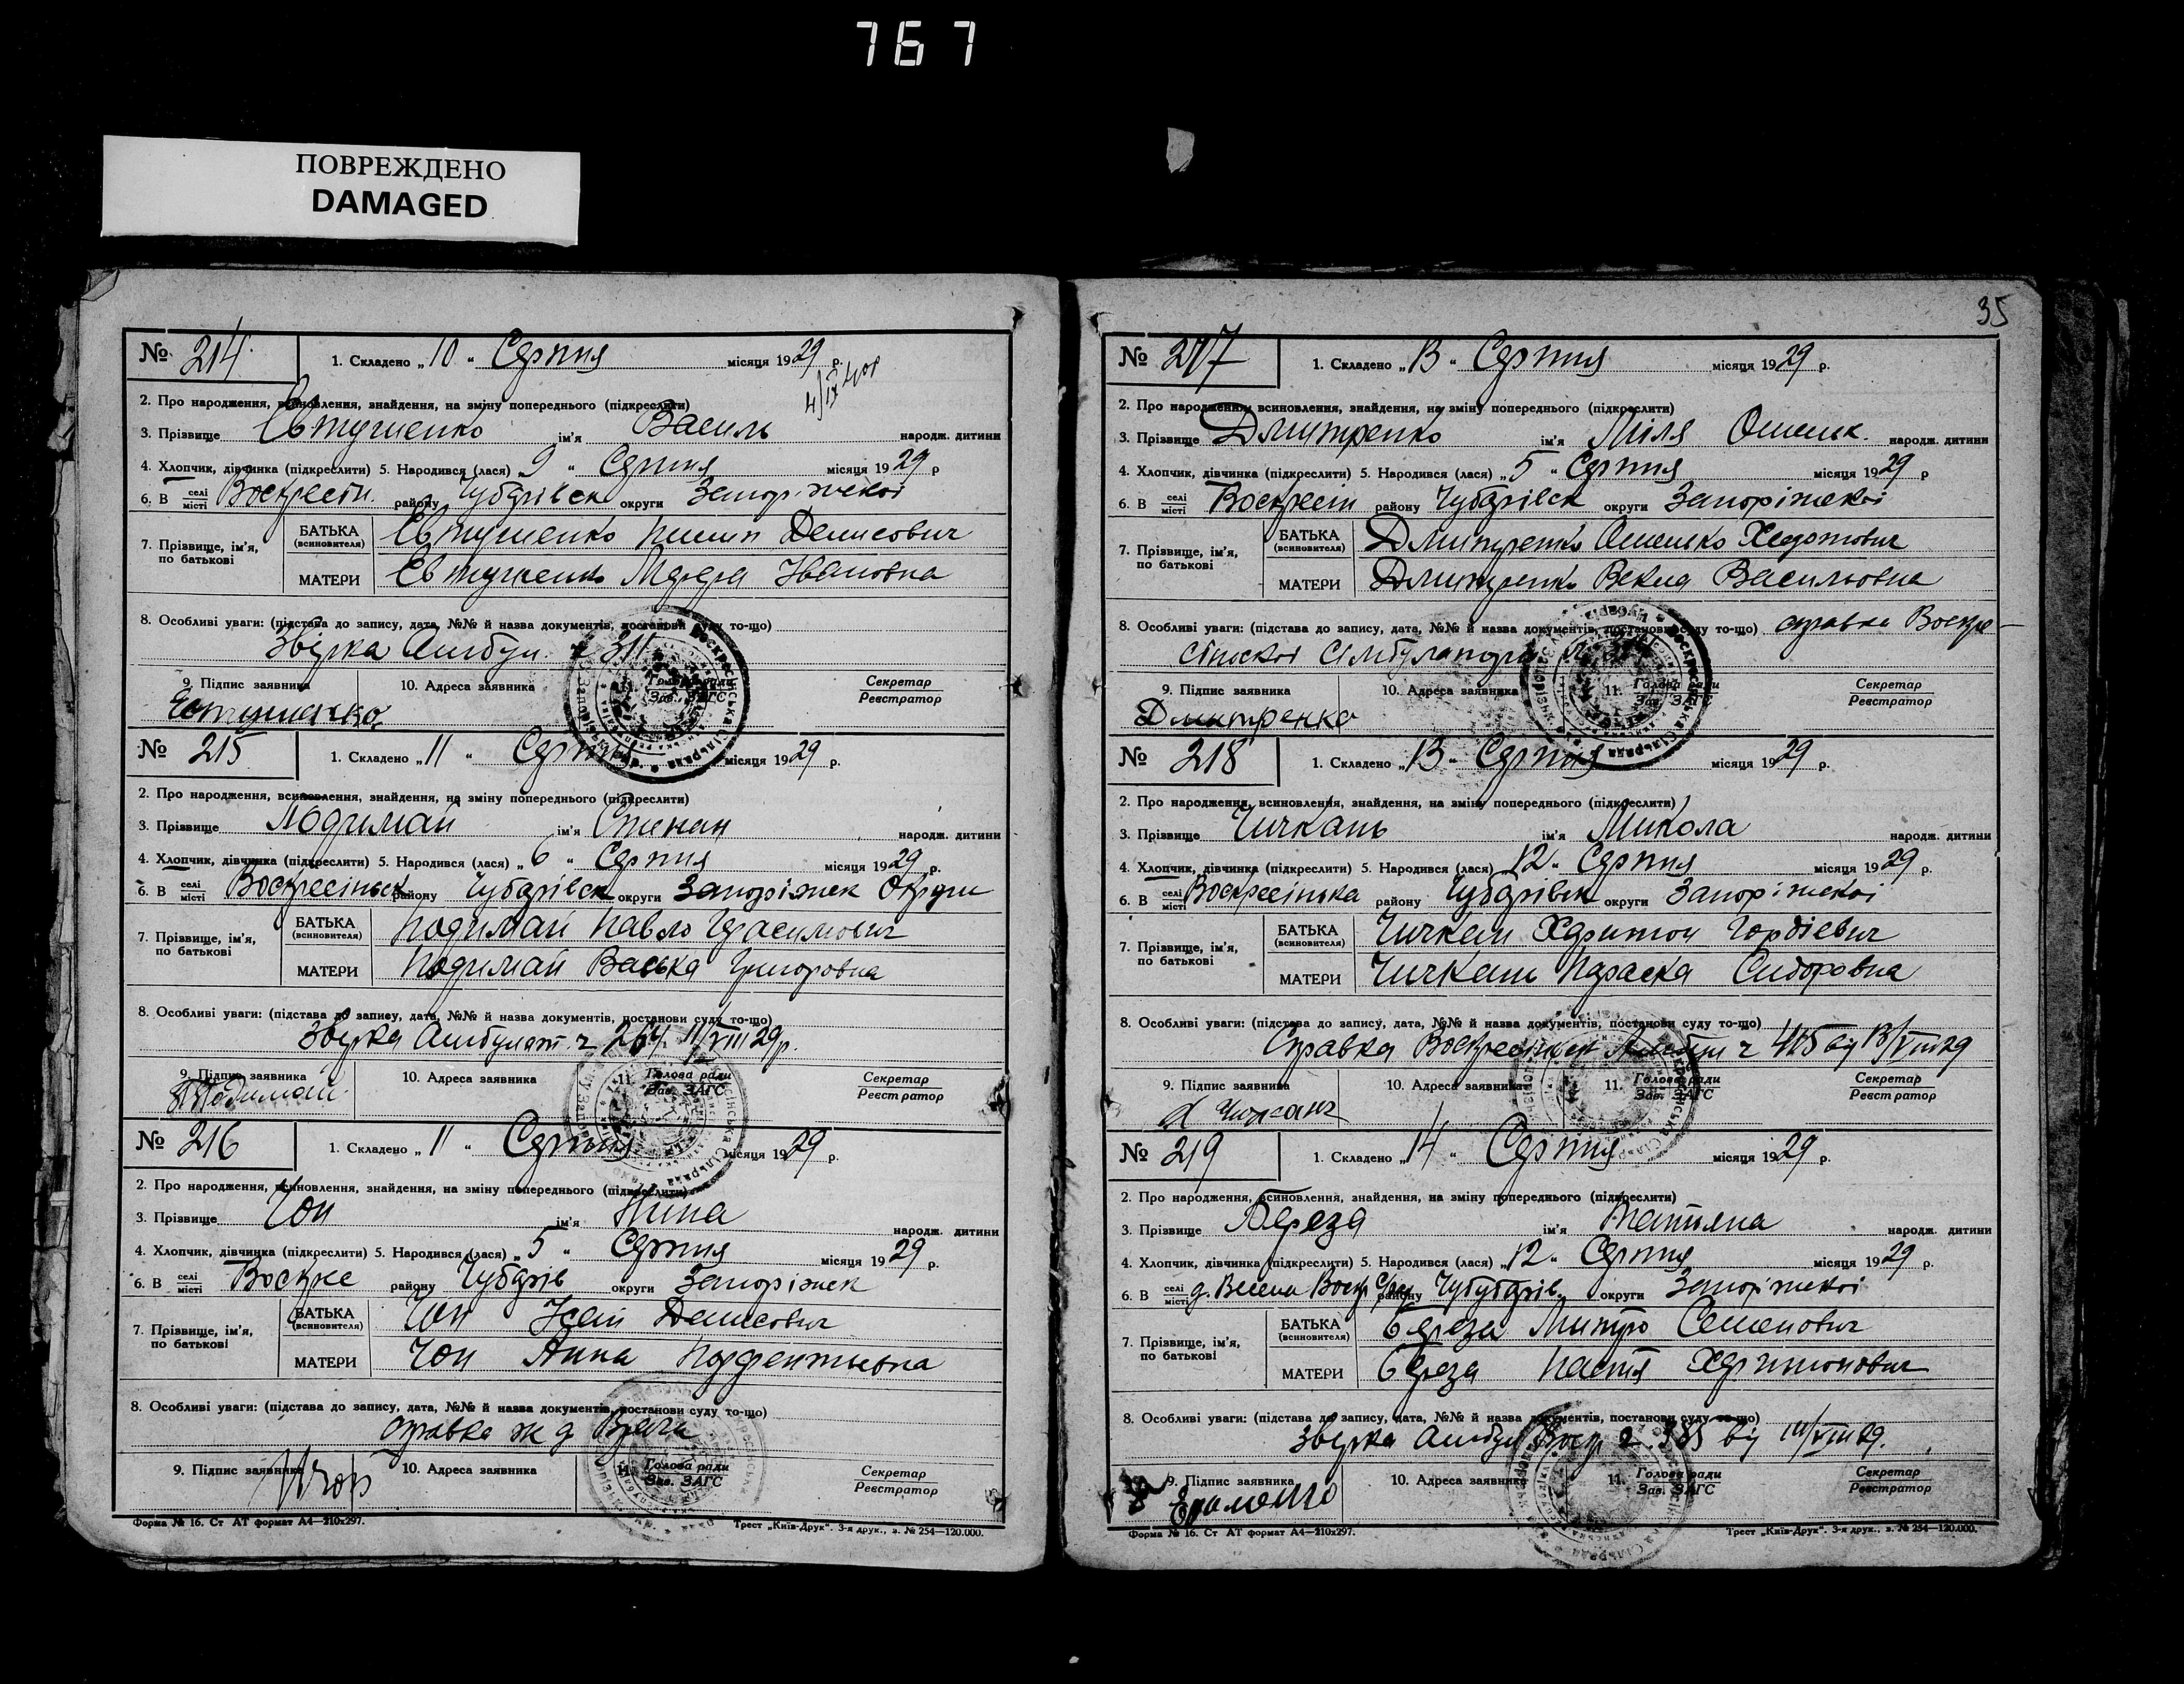 767
ПОВРЕЖДЕНО
DAMAGED
№ 214. 1. Складено „ 10 “ Серпня місяця 1929 р.
2. Про народження, всиновлення, знайдення, на зміну попереднього (підкреслити)
3. Прізвище Євтушенко ім'я Василь народж. дитини
4. Хлопчик, дівчинка (підкреслити) 5. Народився (лася) 9 “ Серпня місяця 1929 р
6. В селі місті Воскресен. району Чубарівськ округи Запоріжської
7. Прізвище, ім'я, по батькові БАТЬКА (всиновителя) Євтушенко Пилип Денисович
МАТЕРИ Євтушенко Марфа Івановна
8. Особливі уваги: (підстава до запису, дата, №№ й назва документів, постанови суду то-що)
Звірка Амбул. ч 311
9. Підпис заявника 10. Адреса заявника 11. Голова ради Зав. ЗАГС Секретар Реєстратор
Євтушенко
№ 215 1. Складено „ 11 “ Серпня місяця 1929 р.
2. Про народження, всиновлення, знайдення, на зміну попереднього (підкреслити)
3. Прізвище Подимай ім'я Степан народж. дитини
4. Хлопчик, дівчинка (підкреслити) 5. Народився (лася) „ 6 “ Серпня місяця 1929 р.
6. В селі місті Воскресіньск району Чубарівськ округи Запоріжск Округи
7. Прізвище, ім'я, по батькові БАТЬКА (всиновителя) Подимай Павло Герасимович
МАТЕРИ Подимай Васька Григоровна
8. Особливі уваги: (підстава до запису, дата, №№ й назва документів, постанови суду то-що)
Звірка Амбулат. ч 264 11/VIII 29 р.
9. Підпис заявника 10. Адреса заявника 11. Голова ради Зав. ЗАГС Секретар Реєстратор
Подимай
№ 216 1. Складено „ 11 “ Серпня місяця 1929 р.
2. Про народження, всиновлення, знайдення, на зміну попереднього (підкреслити)
3. Прізвище Чоп ім'я Нина народж. дитини
4. Хлопчик, дівчинка (підкреслити) 5. Народився (лася) „ 5 “ Серпня місяця 1929 р.
6. В селі місті Воскре району Чубарів округи Запоріжск
7. Прізвище, ім'я, по батькові БАТЬКА (всиновителя) Чоп Ісай Денисович
МАТЕРИ Чоп Анна Парфентьевна
8. Особливі уваги: (підстава до запису, дата, №№ й назва документів, постанови суду то-що)
справка ж д Врача
9. Підпис заявника 10. Адреса заявника 11. Голова ради Зав. ЗАГС Секретар Реєстратор
Форма № 16. Ст АТ формат А4—210х297. Трест „Київ-Друк“. 3-я друк., з. № 254—120.000.
35
№ 217 1. Складено „ 13 “ Серпня місяця 1929 р.
2. Про народження, всиновлення, знайдення, на зміну попереднього (підкреслити)
3. Прізвище Дмитренко ім'я Міля Омельк. народж. дитини
4. Хлопчик, дівчинка (підкреслити) 5. Народився (лася) „ 5 “ Серпня місяця 1929 р
6. В селі місті Воскресен району Чубарівськ округи Запоріжскої
7. Прізвище, ім'я, по батькові БАТЬКА (всиновителя) Дмитренко Омелько Хедотович
МАТЕРИ Дмитренко Векла Васильовна
8. Особливі уваги: (підстава до запису, дата, №№ й назва документів, постанови суду то-що) справка Воскре-
сінскої Амбулатори
9. Підпис заявника 10. Адреса заявника 11. Голова ради Зав. ЗАГС Секретар Реєстратор
Дмитренко
№ 218 1. Складено „ 13 “ Серпня місяця 1929 р.
2. Про народження, всиновлення, знайдення, на зміну попереднього (підкреслити)
3. Прізвище Чичкань ім'я Микола народж. дитини
4. Хлопчик, дівчинка (підкреслити) 5. Народився (лася) „ 12 “ Серпня місяця 1929 р.
6. В селі місті Воскресінька району Чубарівск округи Запоріжскої
7. Прізвище, ім'я, по батькові БАТЬКА (всиновителя) Чичкан Харитон Гордієвич
МАТЕРИ Чичкань Параска Сидоровна
8. Особливі уваги: (підстава до запису, дата, №№ й назва документів, постанови суду то-що)
Справка Воскресіньск Амбул ч 415 від 13/VIII 29
9. Підпис заявника 10. Адреса заявника 11. Голова ради Зав. ЗАГС Секретар Реєстратор
Х Чичкань
№ 219 1. Складено „ 14 “ Серпня місяця 1929 р.
2. Про народження, всиновлення, знайдення, на зміну попереднього (підкреслити)
3. Прізвище Береза ім'я Татьяна народж. дитини
4. Хлопчик, дівчинка (підкреслити) 5. Народився (лася) „ 12 “ Серпня місяця 1929 р.
6. В селі місті д. Весела Воскр с/ради району Чубубарів. округи Запоріжскої
7. Прізвище, ім'я, по батькові БАТЬКА (всиновителя) Береза Митро Семенович
МАТЕРИ Береза Настя Харитонович
8. Особливі уваги: (підстава до запису, дата, №№ й назва документів, постанови суду то-що)
Звірка Амбул Воскр ч. 385 від 14/VIII 29.
9. Підпис заявника 10. Адреса заявника 11. Голова ради Зав. ЗАГС Секретар Реєстратор
Форма № 16. Ст АТ формат А4—210х297. Трест „Київ-Друк“. 3-я друк., з. № 254—120.000.